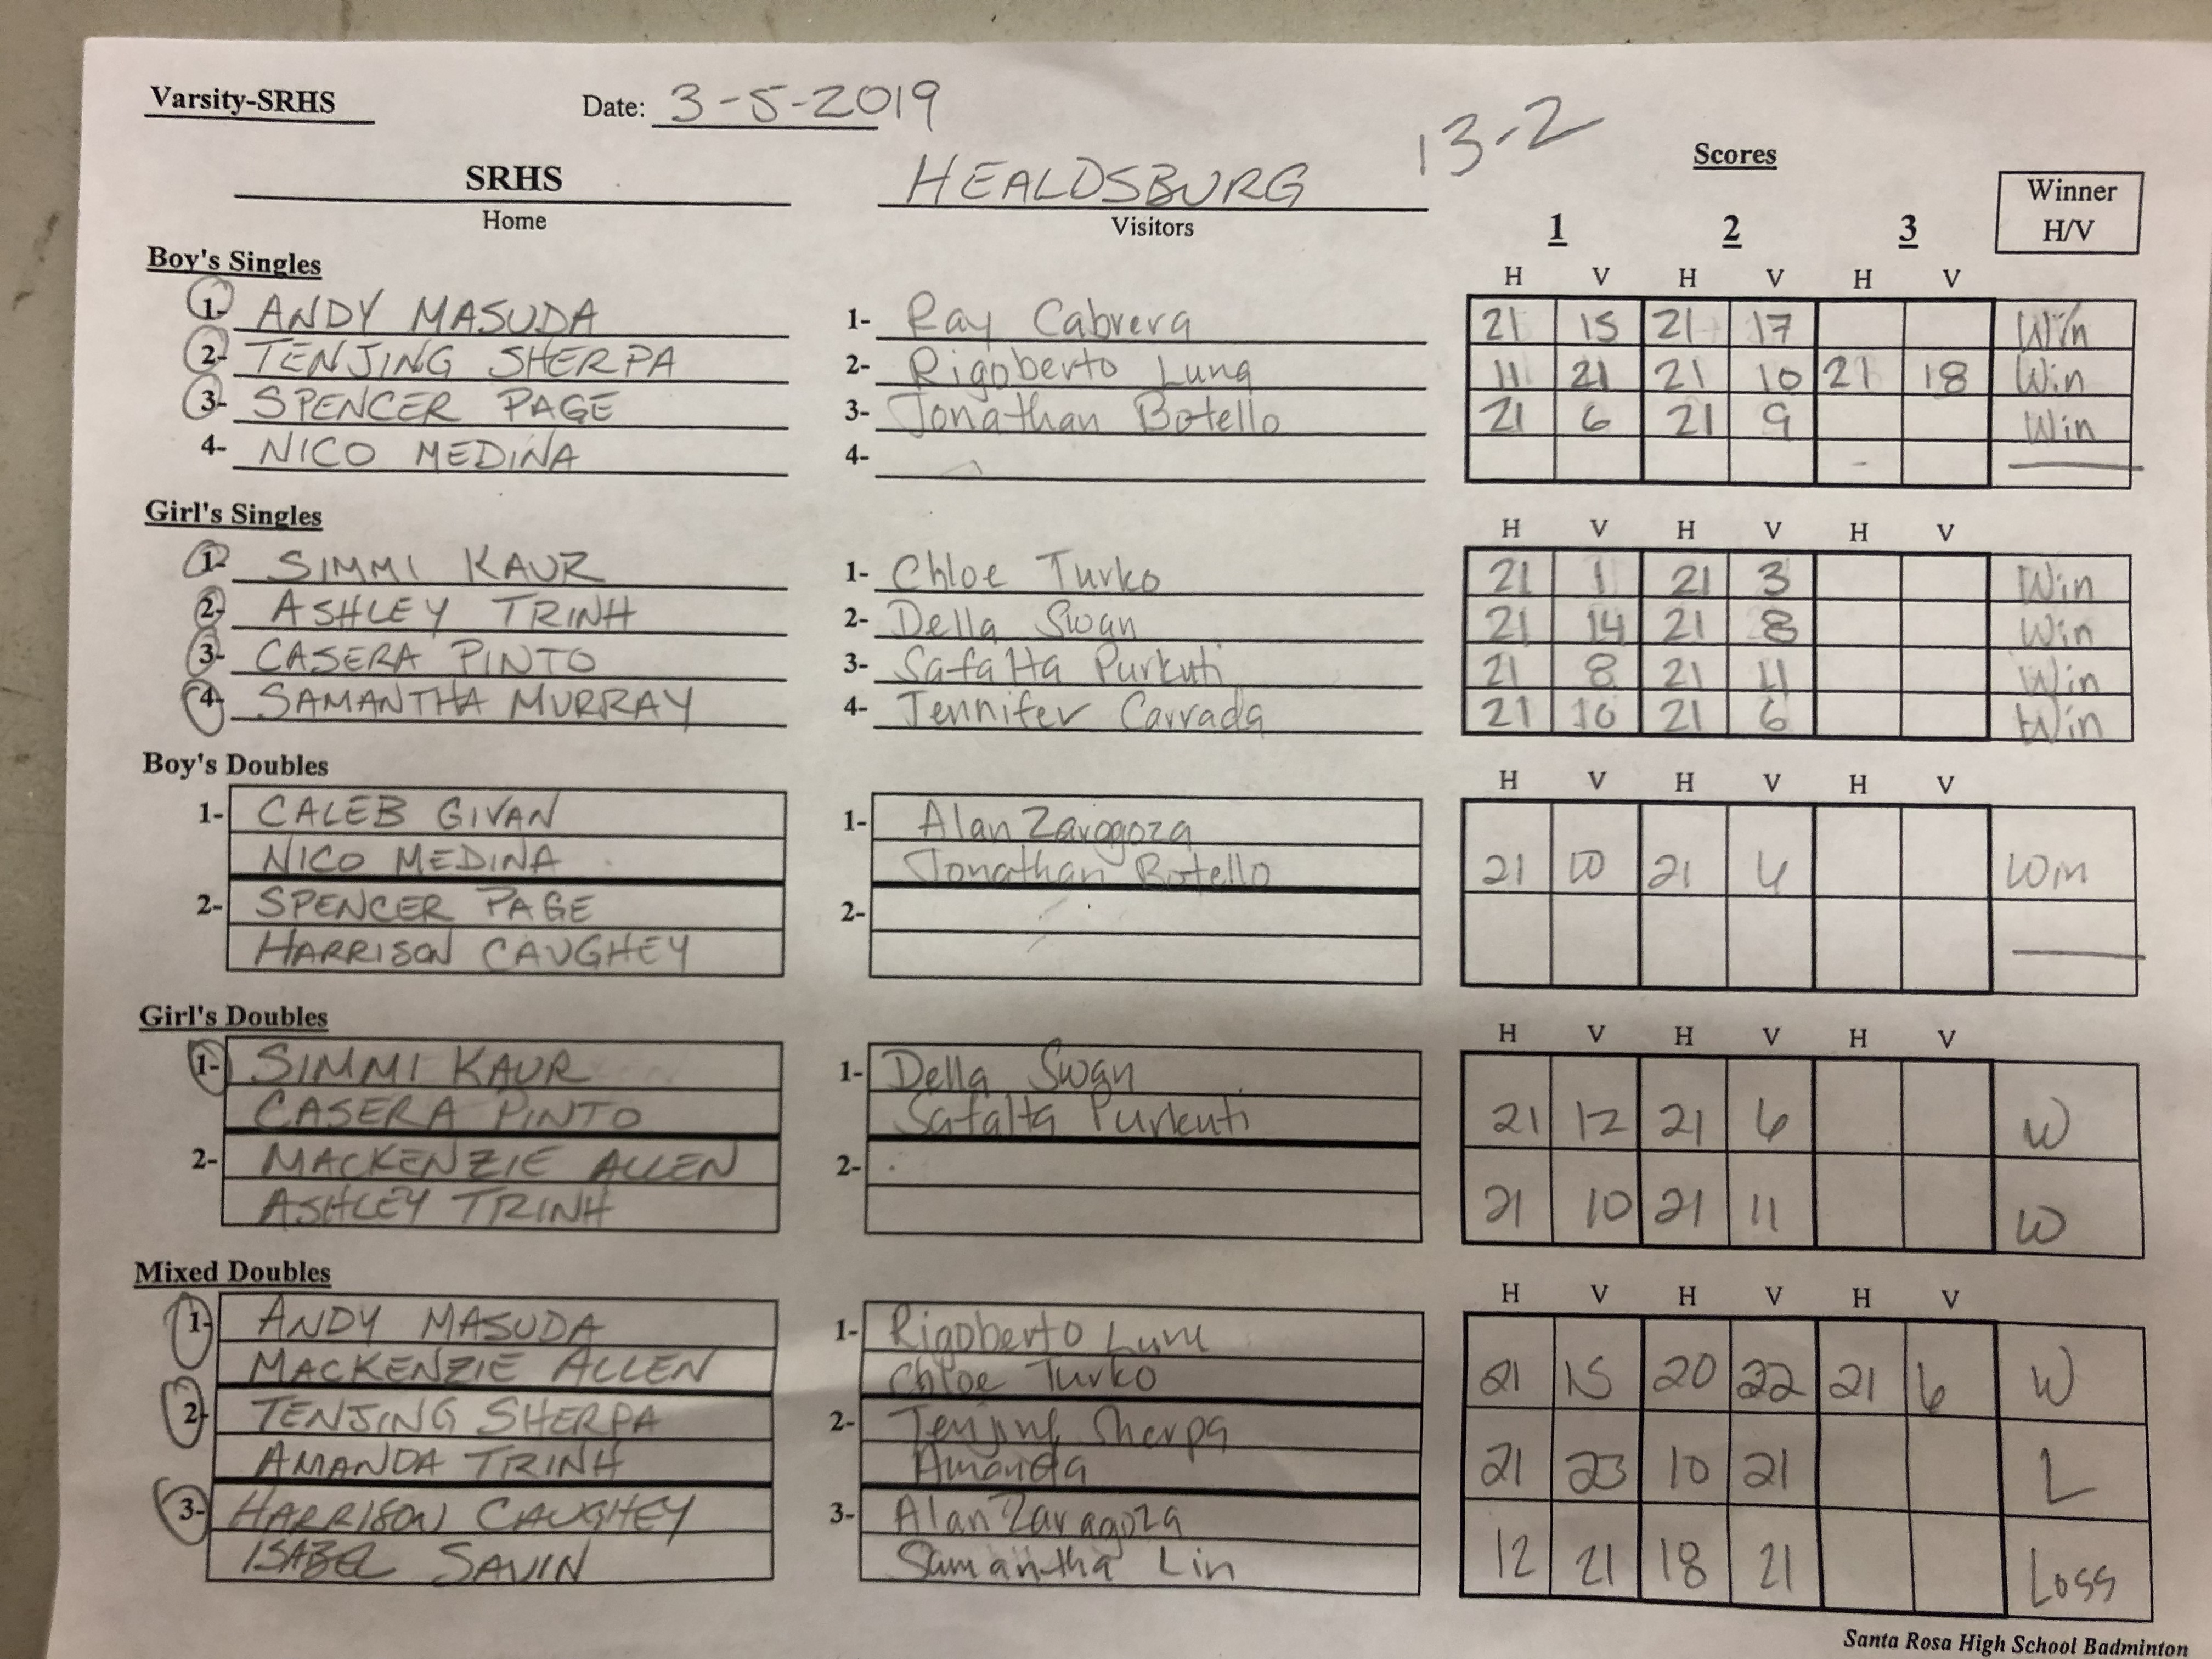 Varsity-SRHS Date: 3-5-2019
13-2
Scores
SRHS HEALDSBURG
Home Visitors
Winner H/V
1 2 3
Boy's Singles
H V H V H V
1- ANDY MASUDA 1- Ray Cabrera 21 15 21 17 Win
2- TENJING SHERPA 2- Rigoberto Luna 11 21 21 10 21 18 Win
3- SPENCER PAGE 3- Jonathan Botello 21 6 21 9 Win
4- NICO MEDINA 4-
Girl's Singles
H V H V H V
1- SIMMI KAUR 1- Chloe Turko 21 1 21 3 Win
2- ASHLEY TRINH 2- Della Swan 21 14 21 8 Win
3- CASERA PINTO 3- Safalta Purkuti 21 8 21 11 Win
4- SAMANTHA MURRAY 4- Jennifer Carrada 21 10 21 6 Win
Boy's Doubles
H V H V H V
1- CALEB GIVAN 1- Alan Zaragoza
NICO MEDINA Jonathan Botello 21 10 21 6 Win
2- SPENCER PAGE 2-
HARRISON CAUGHEY
Girl's Doubles
H V H V H V
1- SIMMI KAUR 1- Della Swan
CASERA PINTO Safalta Purkuti 21 12 21 6 W
2- MACKENZIE ALLEN 2-
ASHLEY TRINH 21 10 21 11 W
Mixed Doubles
H V H V H V
1- ANDY MASUDA 1- Rigoberto Luna
MACKENZIE ALLEN Chloe Turko 21 15 20 22 21 6 W
2- TENJING SHERPA 2- Tenjing Sherpa
AMANDA TRINH Amanda 21 23 10 21 L
3- HARRISON CAUGHEY 3- Alan Zaragoza
ISABEL SAVIN Samantha Lin 12 21 18 21 Loss
Santa Rosa High School Badminton